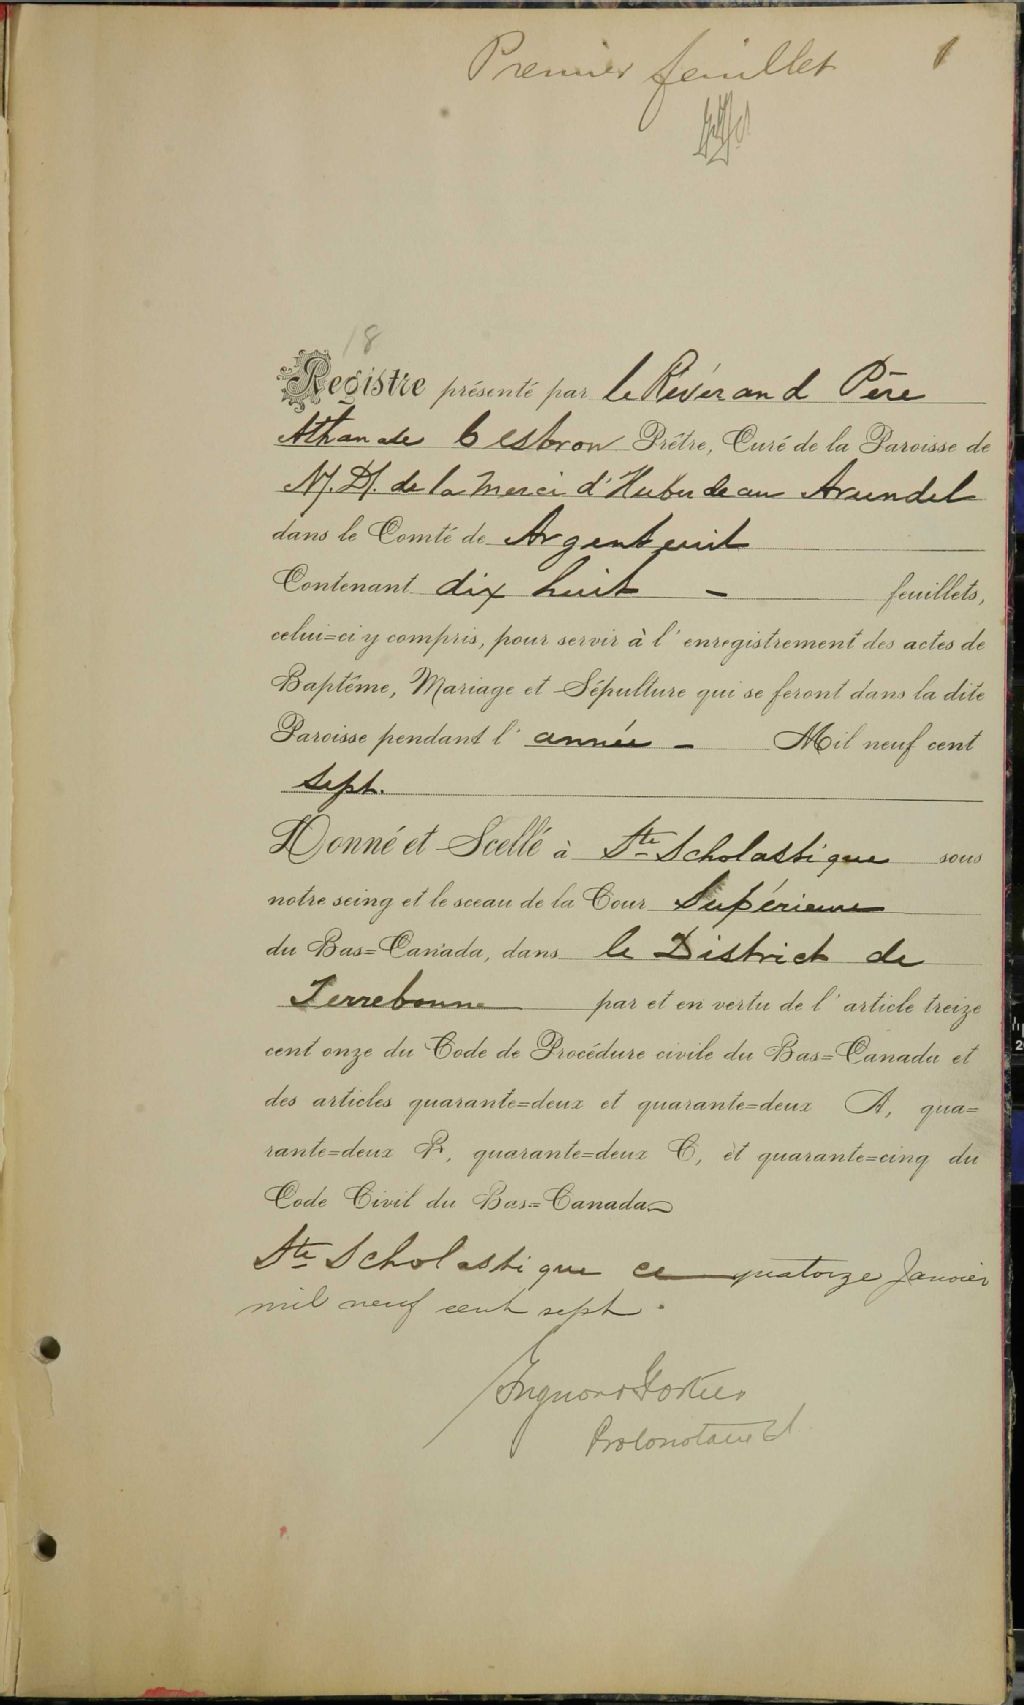 Premier feuillet 1
18
Registre présenté par le Révérand Père
Athanase Cesbron Prêtre, Curé de la Paroisse de
N. D. de la Merci d'Huberdeau Arundel
dans le Comté de Argenteuil
Contenant dix huit - feuillets,
celui=ci y compris, pour servir à l'enregistrement des actes de
Baptême, Mariage et Sépulture qui se feront dans la dite
Paroisse pendant l'année - Mil neuf cent
sept.
Donné et Scellé à Ste Scholastique sous
notre seing et le sceau de la Cour Supérieure
du Bas=Canada, dans le District de
Terrebonne par et en vertu de l'article treize
cent onze du Code de Procédure civile du Bas=Canada et
des articles quarante=deux et quarante=deux A, qua=
rante=deux B, quarante=deux C, et quarante=cinq du
Code Civil du Bas=Canada
Ste Scholastique ce quatorze Janvier
mil neuf cent sept.
Grignon & Fortier
Protonotaire